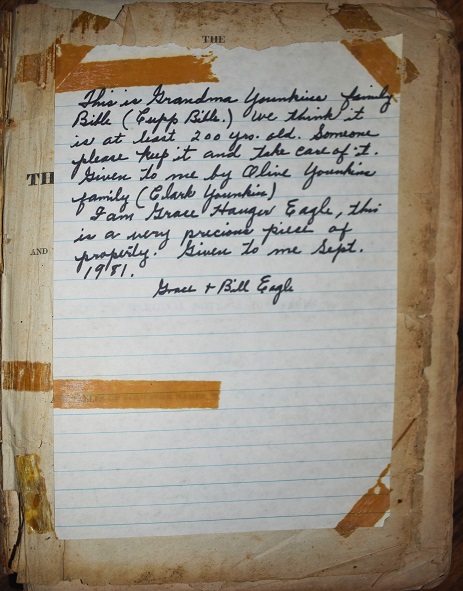 THE
This is Grandma Younkins family
Bible (Cupp Bible.) We think it
is at least 200 yrs. old. Someone
please keep it and take care of it.
Given to me by Oline Younkin
family (Clark Younkin)
TH
I am Grace Hauger Eagle, this
is a very precious piece of
AND
property. Given to me Sept.
1981.
Grace + Bill Eagle